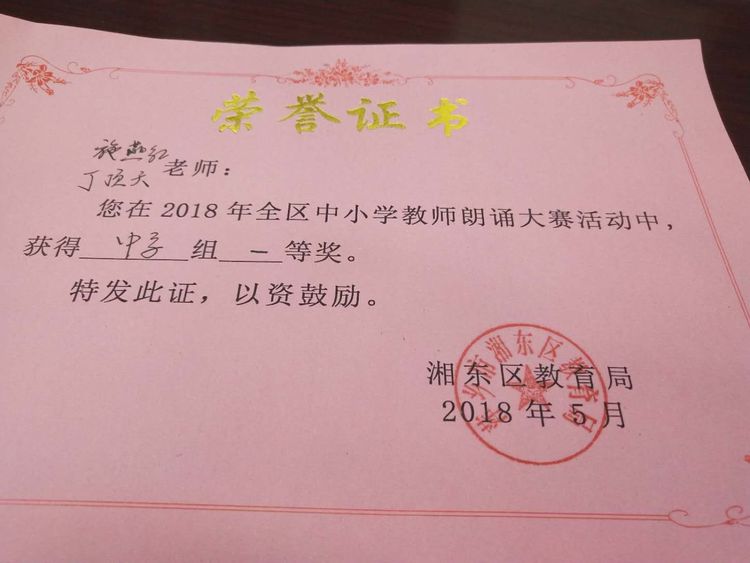 荣誉证书
施燕红
丁顶天老师：
您在2018年全区中小学教师朗诵大赛活动中，
获得中学组一等奖。
特发此证，以资鼓励。
湘东区教育局
2018年5月
萍乡市湘东区教育局